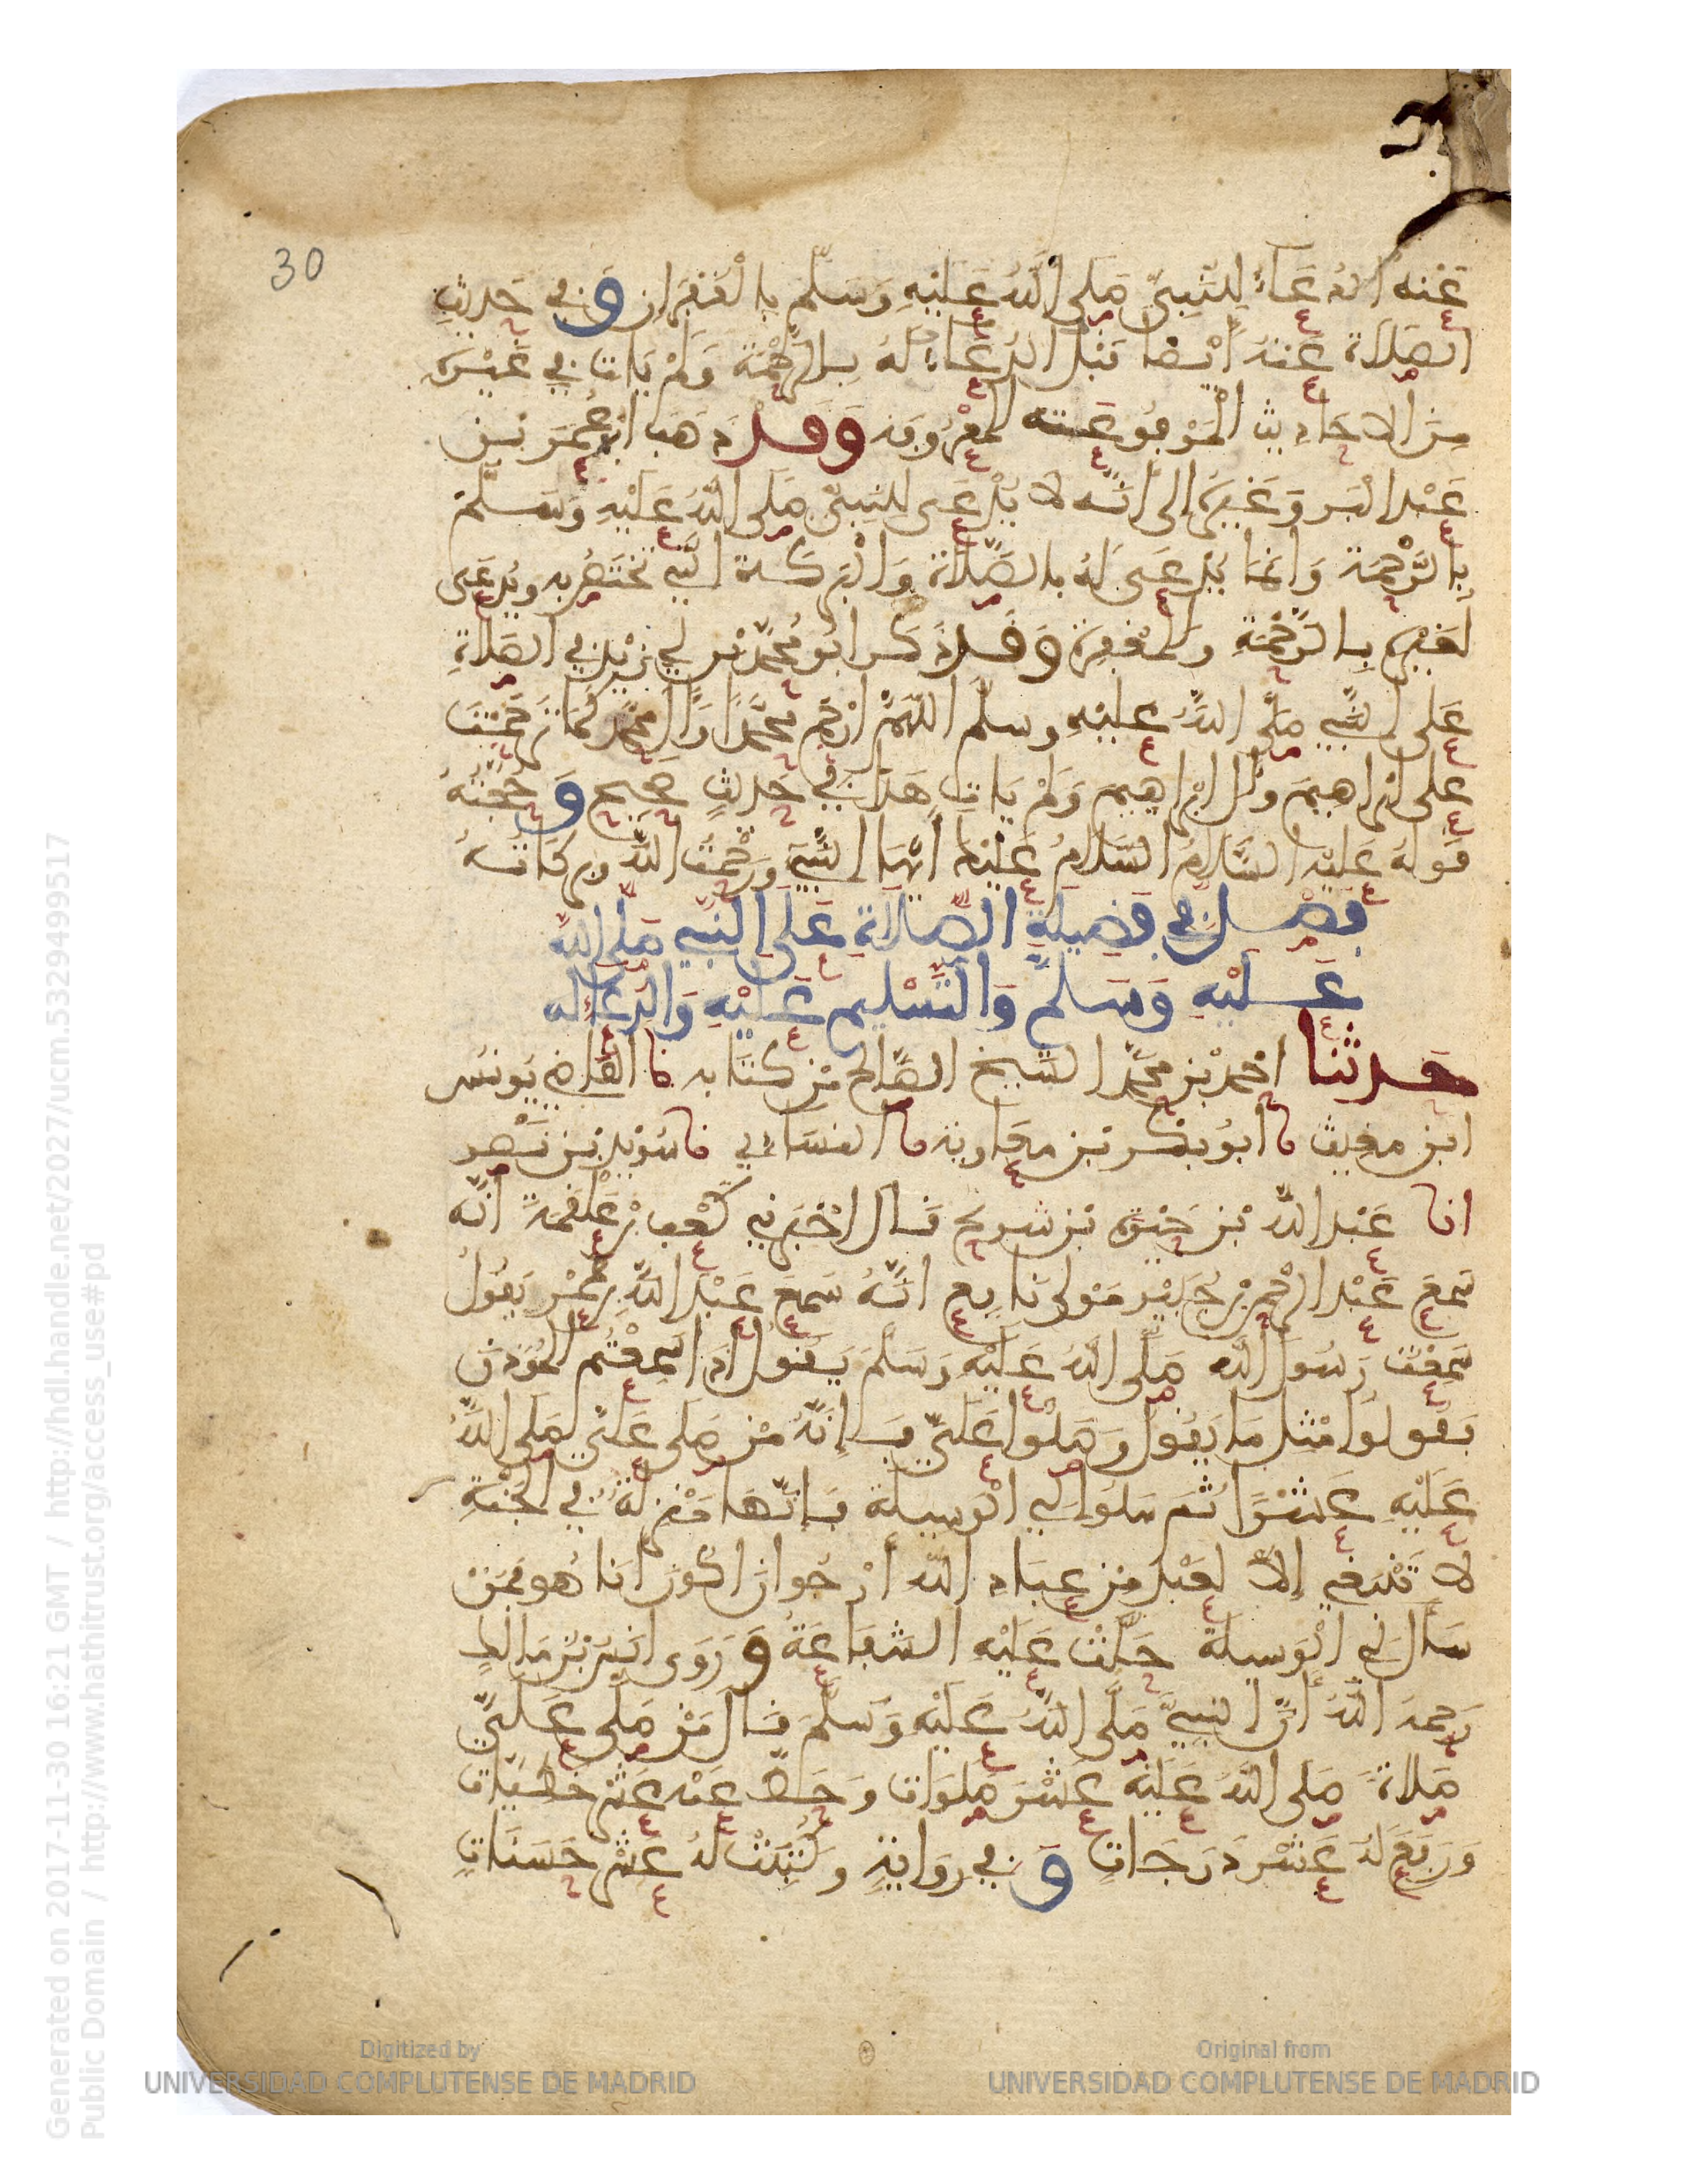 30
عَنْهُ الدُّعَاءُ لِلنَّبِيِّ صَلَّى اللَّهُ عَلَيْهِ وَسَلَّمَ بِالْغُفْرَانِ وَفِي حَدِيثِ
الصَّلَاةِ عَنْهُ أَيْضًا قَبْلُ الدُّعَاءُ لَهُ بِالرَّحْمَةِ وَلَمْ يَاتِ فِي غَيْرِهِ
مِنَ الْاحَادِيثِ الْمَرْفُوعَةِ الْمَعْرُوفَةِ وَقَدْ ذَهَبَ ابُو عُمَرَ بْنُ
عَبْدِ الْبَرِّ وَغَيْرُهُ إِلَى أَنَّهُ لَا يُدْعَى لِلنَّبِيِّ صَلَّى اللَّهُ عَلَيْهِ وَسَلَّمَ
بِالرَّحْمَةِ وَانَّمَا يُدْعَى لَهُ بِالصَّلَاةِ وَالْبَرَكَةِ الَّتِي تَخْتَصُّ بِهِ وَيُدْعَى
لِغَيْرِهِ بِالرَّحْمَةِ وَالْمَغْفِرَةِ وَقَدْ ذَكَرَ ابُو مُحَمَّدِ بْنُ أَبِي زَيْدٍ فِي الصَّلَاةِ
عَلَى النَّبِيِّ صَلَّى اللَّهُ عَلَيْهِ وَسَلَّمَ اللَّهُمَّ ارْحَمْ مُحَمَّدًا وَآلَ مُحَمَّدٍ كَمَا تَرَحَّمْتَ
عَلَى ابْرَاهِيمَ وَآلِ ابْرَاهِيمَ وَلَمْ يَاتِ هَذَا فِي حَدِيثٍ صَحِيحٍ وَحُجَّتُهُ
قَوْلُهُ عَلَيْهِ السَّلَامُ السَّلَامُ عَلَيْكَ أَيُّهَا النَّبِيُّ وَرَحْمَتُ اللَّهِ وَبَرَكَاتُهُ
فَصْلٌ فِي فَضِيلَةِ الصَّلَاةِ عَلَى النَّبِيِّ صَلَّى اللَّهُ
عَلَيْهِ وَسَلَّمَ وَالتَّسْلِيمِ عَلَيْهِ وَالدُّعَاءِ لَهُ
حَدَّثَنَا احْمَدُ بْنُ مُحَمَّدٍ الشَّيْخُ الصَّالِحُ مِنْ كِتَابِهِ نَا الْقَاضِي يُونُسُ
ابْنُ مُغِيثٍ نَا ابُو بَكْرِ بْنُ مُعَاوِيَةَ نَا النَّسَائِي نَا سُوَيْدُ بْنُ نَصْرٍ
انَا عَبْدُ اللَّهِ بْنُ حَيْوَةَ بْنِ شُرَيْحٍ قَالَ اخْبَرَنِي كَعْبُ بْنُ عَلْقَمَةَ أَنَّهُ
سَمِعَ عَبْدَ الرَّحْمَنِ بْنَ جُبَيْرٍ مَوْلَى نَافِعٍ انَّهُ سَمِعَ عَبْدَ اللَّهِ بْنَ عُمَرَ يَقُولُ
سَمِعْتُ رَسُولَ اللَّهِ صَلَّى اللَّهُ عَلَيْهِ وَسَلَّمَ يَقُولُ إِذَا سَمِعْتُمُ الْمُؤَذِّنَ
فَقُولُوا مِثْلَ مَا يَقُولُ وَصَلُّوا عَلَيَّ فَإِنَّهُ مَنْ صَلَّى عَلَيَّ صَلَّى اللَّهُ
عَلَيْهِ عَشْرًا ثُمَّ سَلُوا لِي الْوَسِيلَةَ فَإِنَّهَا مَنْزِلَةٌ فِي الْجَنَّةِ
لَا تَنْبَغِي إِلَّا لِعَبْدٍ مِنْ عِبَادِ اللَّهِ أَرْجُو انْ اكُونَ انَا هُوَ فَمَنْ
سَأَلَ لِي الْوَسِيلَةَ حَلَّتْ عَلَيْهِ الشَّفَاعَةُ وَرَوَى انَسُ بْنُ مَالِكٍ
رَحِمَهُ اللَّهُ أَنَّ النَّبِيَّ صَلَّى اللَّهُ عَلَيْهِ وَسَلَّمَ قَالَ مَنْ صَلَّى عَلَيَّ
صَلَاةً صَلَّى اللَّهُ عَلَيْهِ عَشْرَ صَلَوَاتٍ وَحَطَّ عَنْهُ عَشْرَ خَطِيَّاتٍ
وَرَفَعَ لَهُ عَشْرَ دَرَجَاتٍ وَفِي رِوَايَةٍ وَكُتِبَتْ لَهُ عَشْرُ حَسَنَاتٍ
Generated on 2017-11-30 16:21 GMT / http://hdl.handle.net/2027/ucm.5329499517
Public Domain / http://www.hathitrust.org/access_use#pd
Digitized by
UNIVERSIDAD COMPLUTENSE DE MADRID
Original from
UNIVERSIDAD COMPLUTENSE DE MADRID